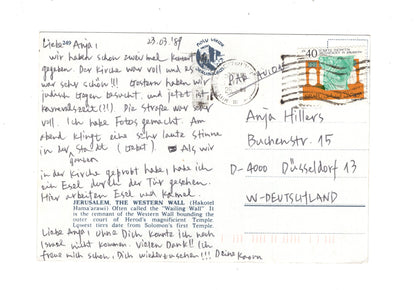 Liebe Anja! 23.03.'89
wir haben schon zweimal Konzert
gegeben. Der Kirche war voll und es
war sehr schön!!! Gestern haben wir
besucht, und jetzt ist
Karnevalszeit(?!) Die Straße war sehr
voll. Ich habe Fotos gemacht. Am
Abend klingt eine sehr laute Stimme
in der Stadt (Gebet). Als wir
in der Kirche geprobt habe, habe ich
ein Esel durch der Tür gesehen.
Hier arbeiten Esel und Kamel.
JERUSALEM, THE WESTERN WALL (Hakotel
Hama'arawi) Often called the "Wailing Wall" It
is the remnant of the Western Wall bounding the
outer court of Herod's magnificient Temple.
Lowest tiers date from Solomon's first Temple.
Liebe Anja, ohne Dich konnte ich nach
Israel nicht kommen. Vielen Dank!! Ich
freue mich schon, Dich wiederzusehen!!! Deine
40
PAR AVION
Anja Hillers
Buchenstr. 15
D-4000 Düsseldorf 13
W-DEUTSCHLAND